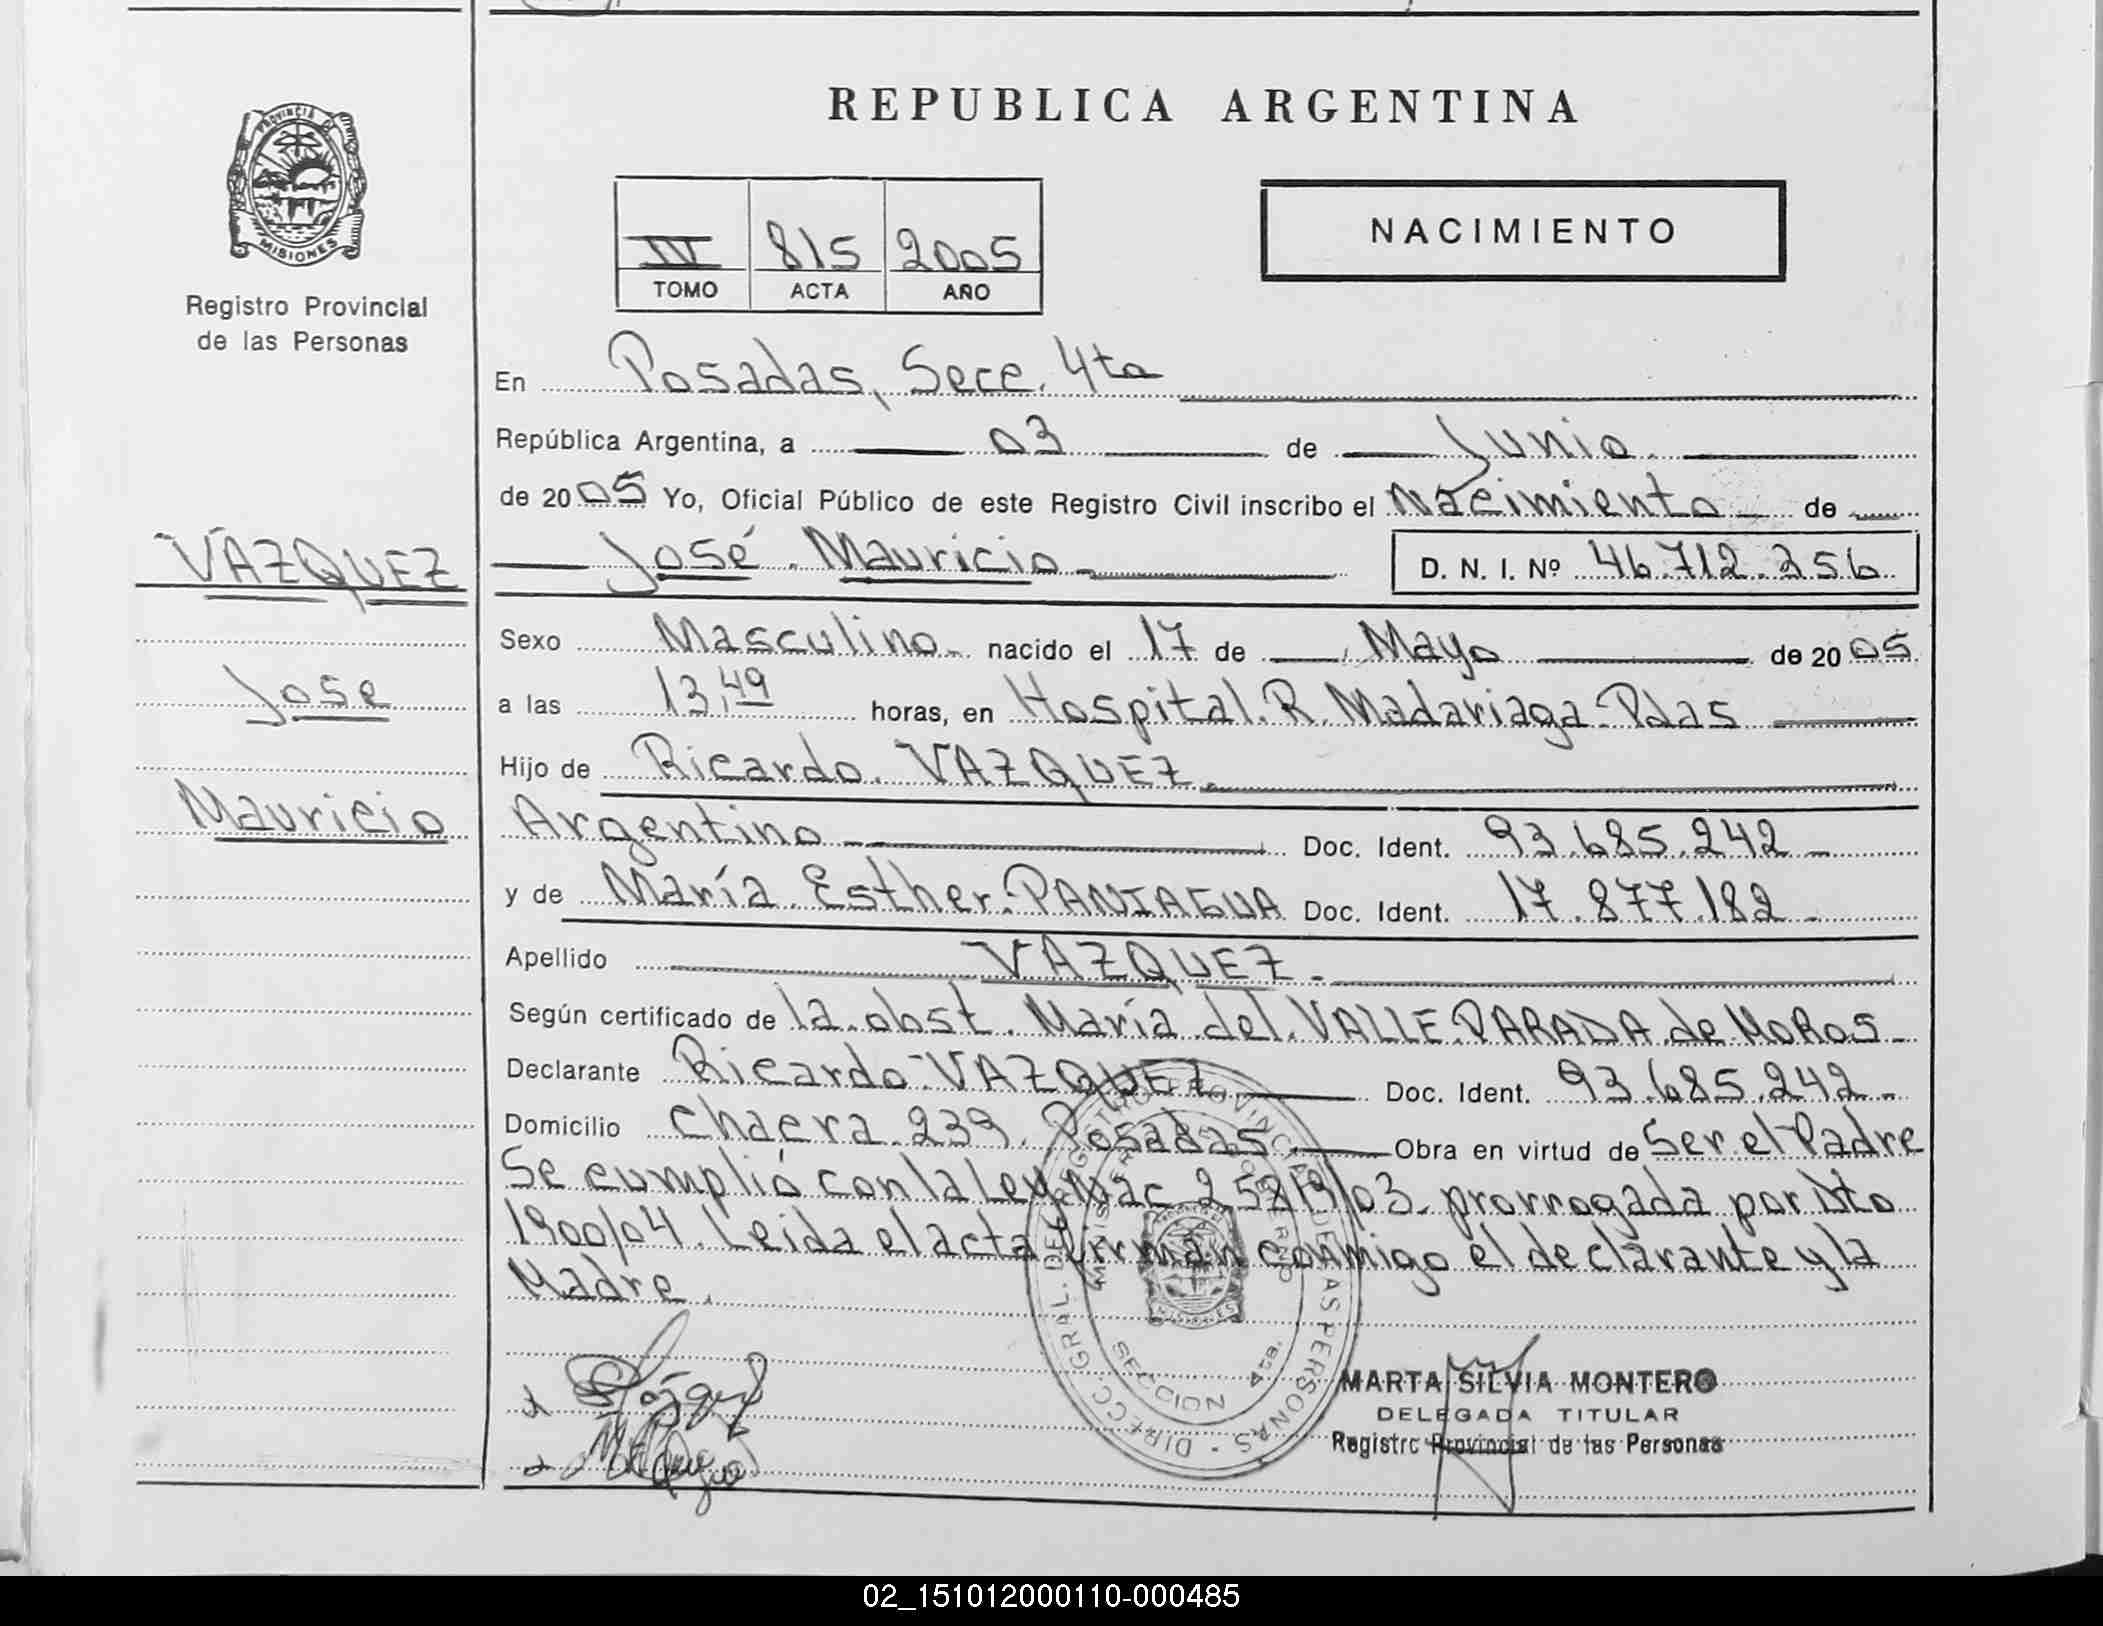 REPUBLICA ARGENTINA
PROVINCIA DE
MISIONES
Registro Provincial
de las Personas
IV 815 2005
TOMO ACTA AÑO
NACIMIENTO
En Posadas, Secc. 4ta
República Argentina, a 03 de Junio
de 2005 Yo, Oficial Público de este Registro Civil inscribo el Nacimiento de
VAZQUEZ
José Mauricio D. N. I. Nº 46.712.256
Sexo Masculino nacido el 17 de Mayo de 2005
Jose
a las 13,49 horas, en Hospital R. Madariaga-Pdas
Hijo de Ricardo VAZQUEZ
Mauricio
Argentino Doc. Ident. 93.685.242
y de María Esther PANIAGUA Doc. Ident. 17.877.182
Apellido VAZQUEZ
Según certificado de la obst. María del VALLE PARADA de MOROS
Declarante Ricardo VAZQUEZ Doc. Ident. 93.685.242
Domicilio Chacra 239. Posadas Obra en virtud de Ser el Padre
Se cumplió con la Ley Nac 25819/03 prorrogada por Dto
1900/04. Leida el acta firman conmigo el declarante y la
Madre.
DIRECC. GRAL. DEL REGISTRO PROVINCIAL DE LAS PERSONAS
SECCION 4ta.
MARTA SILVIA MONTERO
DELEGADA TITULAR
Registro Provincial de las Personas
02_151012000110-000485